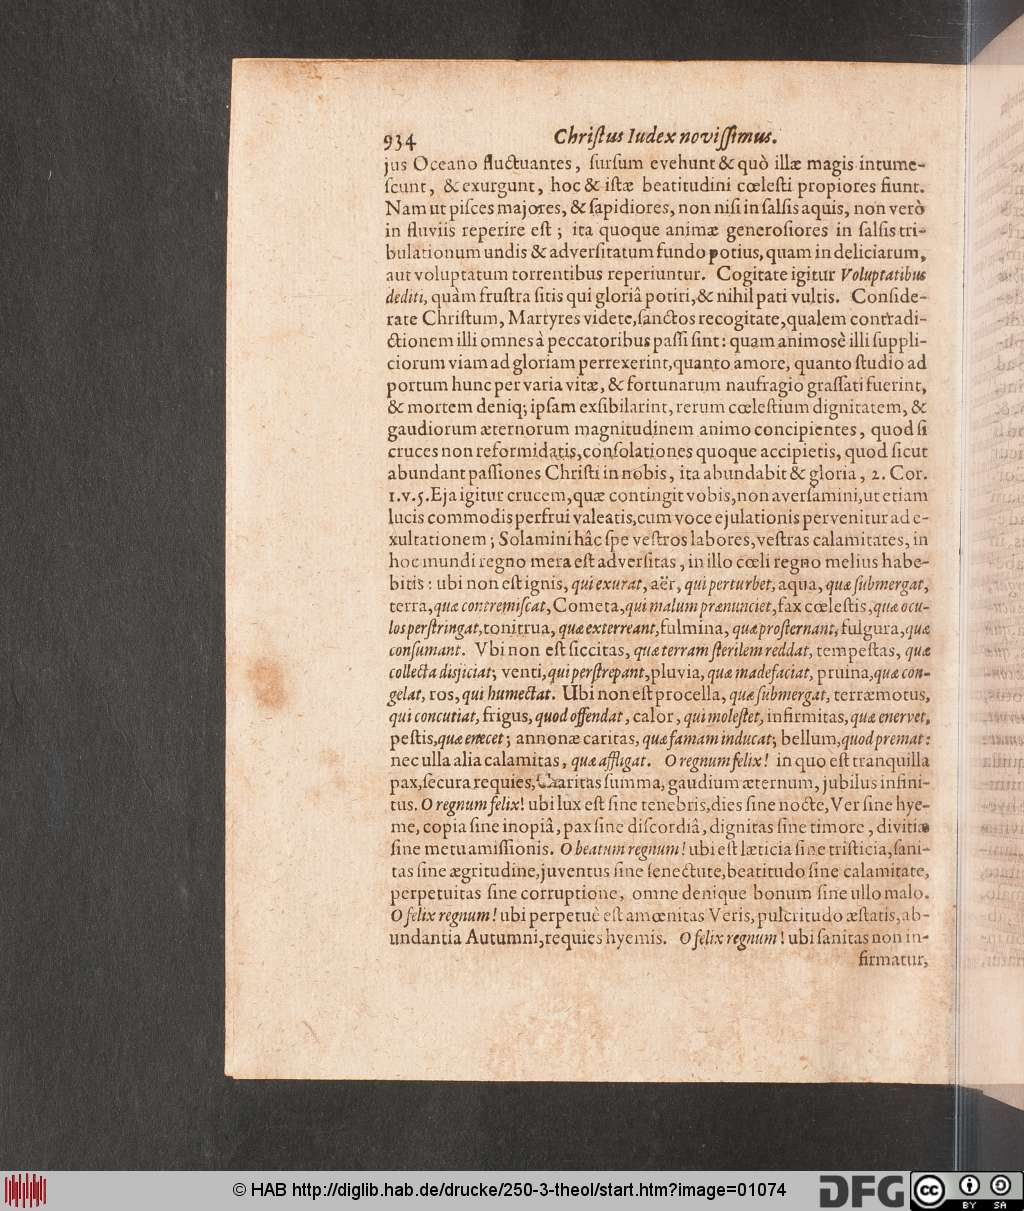 934 Chriſtus Iudex noviſſimus.
jus Oceano fluctuantes, ſurſum evehunt & quò illæ magis intume-
ſcunt, & exurgunt, hoc & iſtæ beatitudini cœleſti propiores fiunt.
Nam ut piſces majores, & ſapidiores, non niſi in ſalſis aquis, non verò
in fluviis reperire eſt; ita quoque animæ generoſiores in ſalſis tri-
bulationum undis & adverſitatum fundo potius, quam in deliciarum,
aut voluptatum torrentibus reperiuntur. Cogitate igitur Voluptatibus
dediti, quàm fruſtra ſitis qui gloriâ potiri, & nihil pati vultis. Conſide-
rate Chriſtum, Martyres videte, ſanctos recogitate, qualem contradi-
ctionem illi omnes à peccatoribus paſſi ſint: quam animosè illi ſuppli-
ciorum viam ad gloriam perrexerint, quanto amore, quanto ſtudio ad
portum hunc per varia vitæ, & fortunarum naufragio graſſati fuerint,
& mortem deniq; ipſam exſibilarint, rerum cœleſtium dignitatem, &
gaudiorum æternorum magnitudinem animo concipientes, quod ſi
cruces non reformidatis, conſolationes quoque accipietis, quod ſicut
abundant paſſiones Chriſti in nobis, ita abundabit & gloria, 2. Cor.
1. v. 5. Eja igitur crucem, quæ contingit vobis, non averſamini, ut etiam
lucis commodis perfrui valeatis, cum voce ejulationis pervenitur ad e-
xultationem; Solamini hâc ſpe veſtros labores, veſtras calamitates, in
hoc mundi regno mera eſt adverſitas, in illo cœli regno melius habe-
bitis: ubi non eſt ignis, qui exurat, aër, qui perturbet, aqua, quæ ſubmergat,
terra, quæ contremiſcat, Cometa, qui malum prænunciet, fax cœleſtis, quæ ocu-
los perſtringat, tonitrua, quæ exterreant, fulmina, quæ proſternant, fulgura, quæ
conſumant. Vbi non eſt ſiccitas, quæ terram ſterilem reddat, tempeſtas, quæ
collecta disjiciat; venti, qui perſtrepant, pluvia, quæ madefaciat, pruina, quæ con-
gelat, ros, qui humectat. Ubi non eſt procella, quæ ſubmergat, terræmotus,
qui concutiat, frigus, quod offendat, calor, qui moleſtet, infirmitas, quæ enervet,
peſtis, quæ enecet; annonæ caritas, quæ famam inducat; bellum, quod premat:
nec ulla alia calamitas, quæ affligat. O regnum felix! in quo eſt tranquilla
pax, ſecura requies, Charitas ſumma, gaudium æternum, jubilus infini-
tus. O regnum felix! ubi lux eſt ſine tenebris, dies ſine nocte, Ver ſine hye-
me, copia ſine inopiâ, pax ſine diſcordiâ, dignitas ſine timore, divitiæ
ſine metu amiſſionis. O beatum regnum! ubi eſt læticia ſine triſticia, ſani-
tas ſine ægritudine, juventus ſine ſenectute, beatitudo ſine calamitate,
perpetuitas ſine corruptione, omne denique bonum ſine ullo malo.
O felix regnum! ubi perpetuè eſt amœnitas Veris, pulcritudo æſtatis, ab-
undantia Autumni, requies hyemis. O felix regnum! ubi ſanitas non in-
firmatur,
© HAB http://diglib.hab.de/drucke/250-3-theol/start.htm?image=01074
DFG
cc BY SA